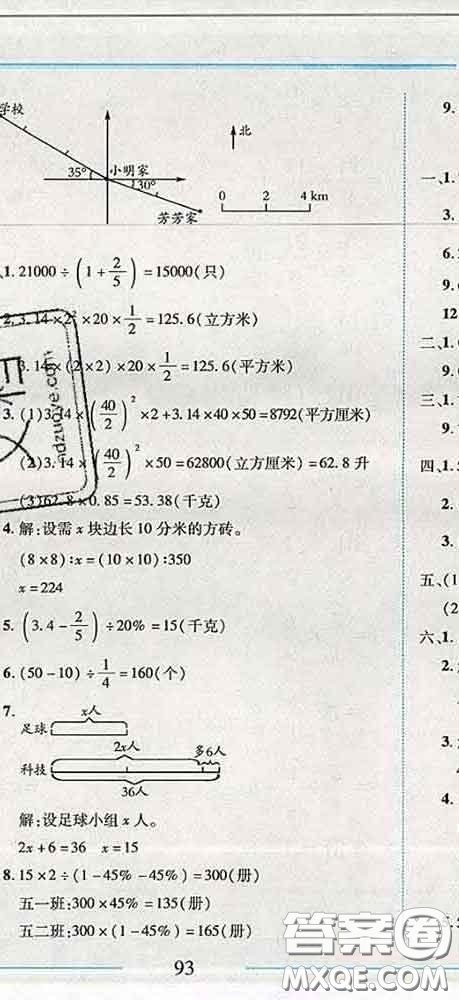 学校
北
35°
小明家
30°
芳芳家
0 2 4 km
1. 21000÷(1+2/5)=15000(只)
2. 3.14×2²×20×1/2=125.6(立方米)
3.14×(2×2)×20×1/2=125.6(平方米)
3. (1)3.14×(40/2)²×2+3.14×40×50=8792(平方厘米)
(2)3.14×(40/2)²×50=62800(立方厘米)=62.8升
(3)62.8×0.85=53.38(千克)
4. 解:设需x块边长10分米的方砖。
(8×8):x=(10×10):350
x=224
5. (3.4-2/5)÷20%=15(千克)
6. (50-10)÷1/4=160(个)
7.
x人
足球
2x人 多6人
科技
36人
解:设足球小组x人。
2x+6=36 x=15
8. 15×2÷(1-45%-45%)=300(册)
五一班:300×45%=135(册)
五二班:300×(1-45%)=165(册)
93
9.
一、1.
3.
6.
9.
12
二、1.
9.
三、1.
7.
四、1.
2.
3.
五、(1
(2
六、1.
2.
3.
4.
5.
答案圈
MXQE.COM